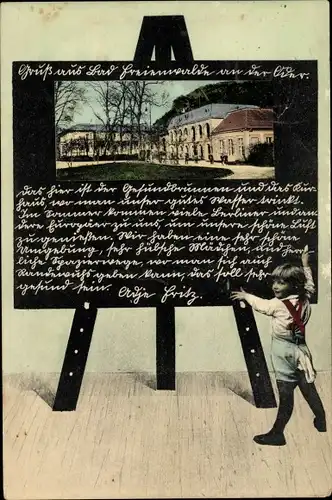 Gruß aus Bad Freienwalde an der Oder.
Das hier ist der Gesundbrunnen und das Kur-
haus, wo man unser gutes Wasser trinkt.
Im Sommer kommen viele Berliner und an-
dere Europäer zu uns, um unsere schöne Luft
zu genießen. Wir haben eine sehr schöne
Umgebung, sehr hübsche Mädchen und herr-
liche Spazierwege, wo man sich auch
Randewuhs geben kann, das soll sehr
gesund sein. Adje Fritz.